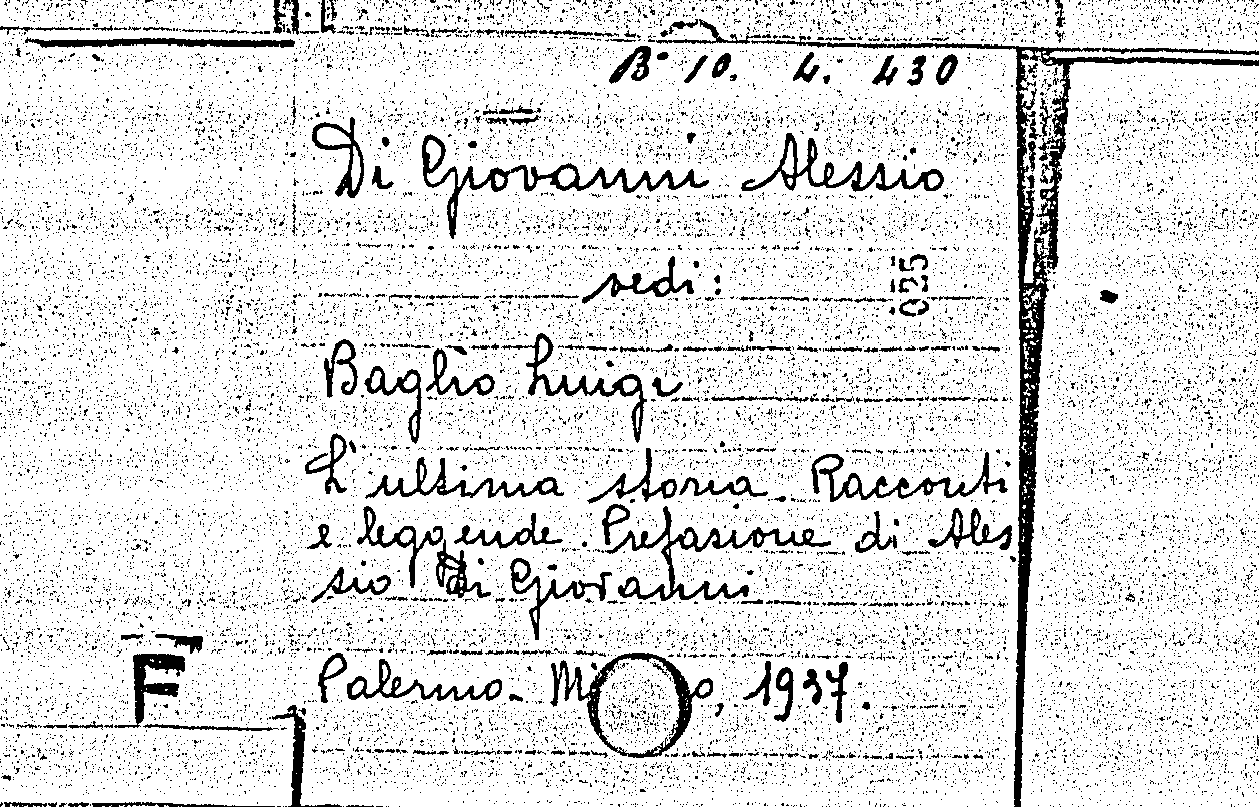 B- 10. 4. 430
Di Giovanni Alessio
vedi:
025
Baglio Luigi
L'ultima storia. Racconti
e leggende. Prefasione di Ales
sio Di Giovanni
Palermo - 1937.
F